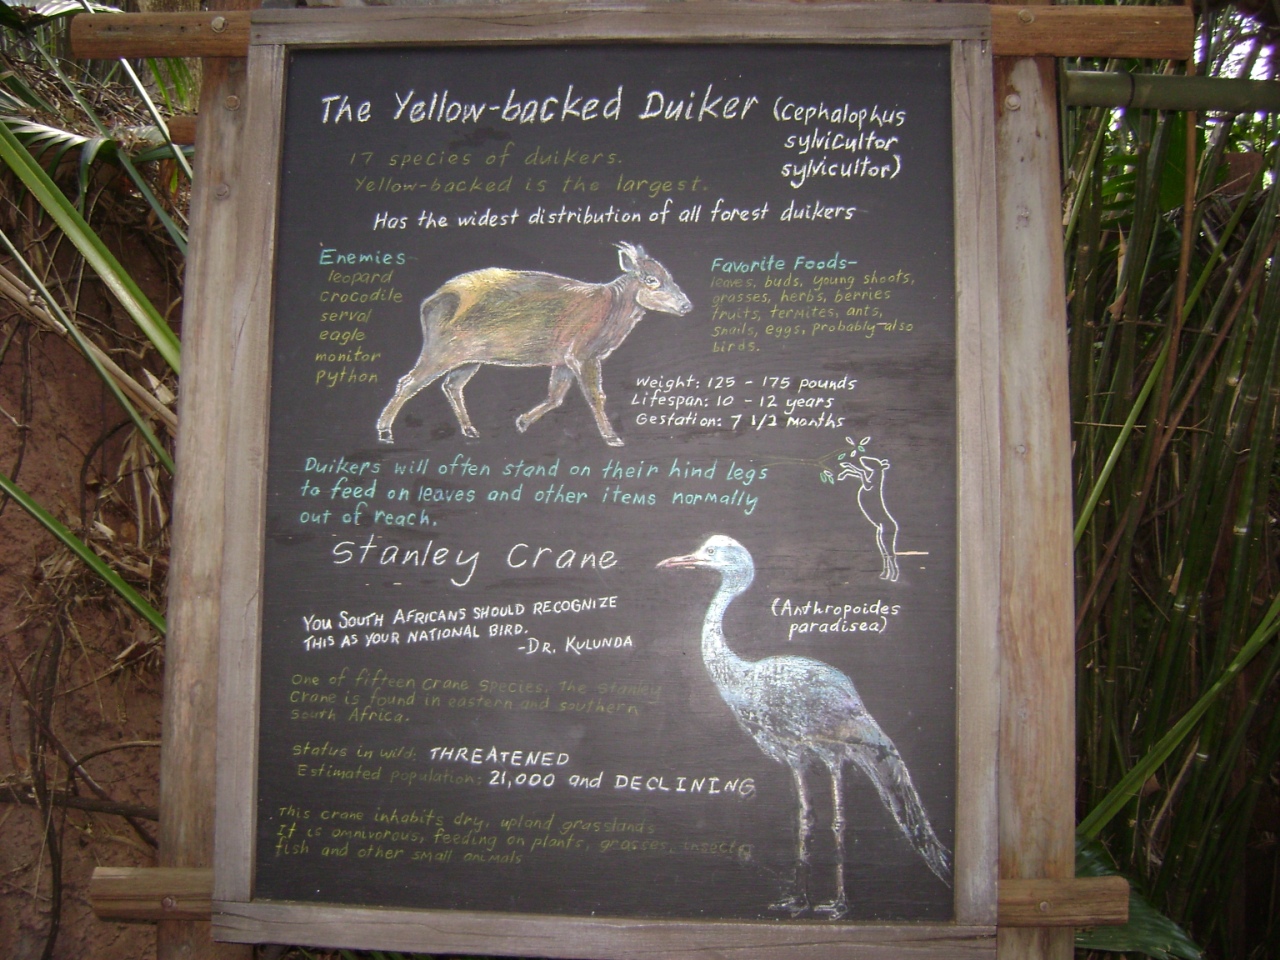 The Yellow-backed Duiker (Cephalophus
sylvicultor
sylvicultor)
17 species of duikers.
Yellow-backed is the largest.
Has the widest distribution of all forest duikers
Enemies-
leopard
crocodile
serval
eagle
monitor
python
Favorite Foods-
leaves, buds, young shoots,
grasses, herbs, berries
fruits, termites, ants,
snails, eggs, probably also
birds.
Weight: 125 - 175 pounds
Lifespan: 10 - 12 years
Gestation: 7 1/2 months
Duikers will often stand on their hind legs
to feed on leaves and other items normally
out of reach.
Stanley Crane
(Anthropoides
paradisea)
YOU SOUTH AFRICANS SHOULD RECOGNIZE
THIS AS YOUR NATIONAL BIRD.
-DR. KULUNDA
One of fifteen crane species, the Stanley
Crane is found in eastern and southern
South Africa.
Status in wild: THREATENED
Estimated population: 21,000 and DECLINING
This crane inhabits dry, upland grasslands
It is omnivorous, feeding on plants, grasses, insects
fish and other small animals